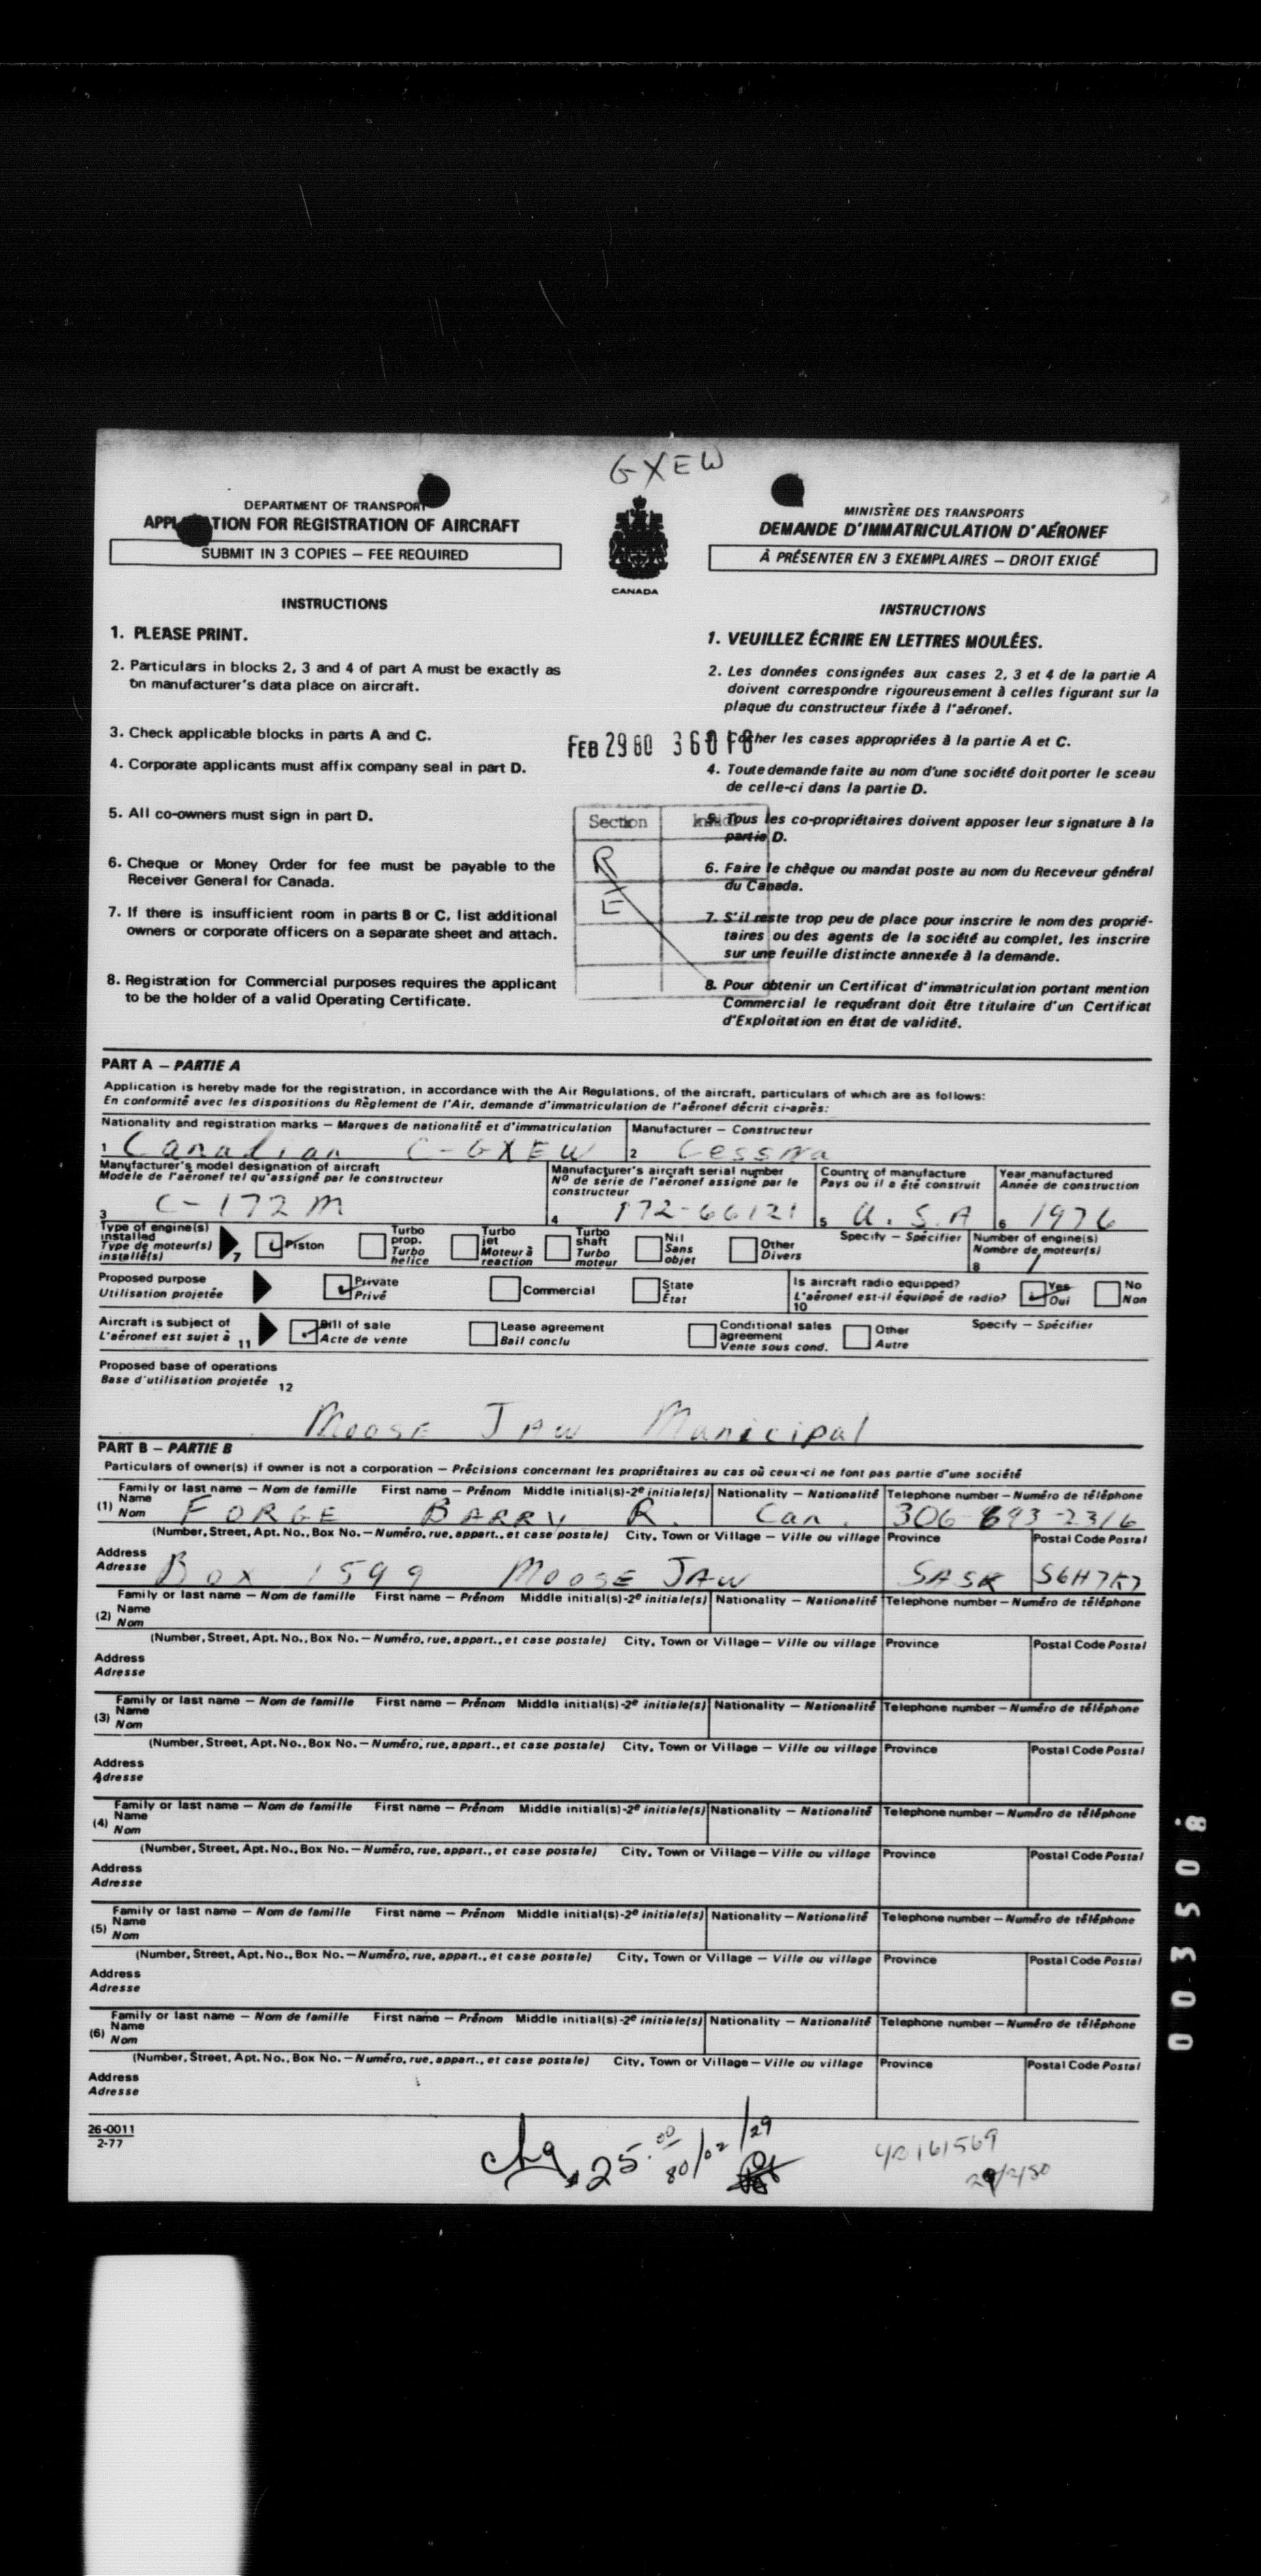 GXEW
DEPARTMENT OF TRANSPORT
APPLICATION FOR REGISTRATION OF AIRCRAFT
SUBMIT IN 3 COPIES – FEE REQUIRED
CANADA
MINISTÈRE DES TRANSPORTS
DEMANDE D'IMMATRICULATION D'AÉRONEF
À PRÉSENTER EN 3 EXEMPLAIRES – DROIT EXIGÉ
INSTRUCTIONS
1. PLEASE PRINT.
2. Particulars in blocks 2, 3 and 4 of part A must be exactly as
on manufacturer's data place on aircraft.
3. Check applicable blocks in parts A and C.
4. Corporate applicants must affix company seal in part D.
5. All co-owners must sign in part D.
6. Cheque or Money Order for fee must be payable to the
Receiver General for Canada.
7. If there is insufficient room in parts B or C, list additional
owners or corporate officers on a separate sheet and attach.
8. Registration for Commercial purposes requires the applicant
to be the holder of a valid Operating Certificate.
FEB 29 80
Section
R
E
INSTRUCTIONS
1. VEUILLEZ ÉCRIRE EN LETTRES MOULÉES.
2. Les données consignées aux cases 2, 3 et 4 de la partie A
doivent correspondre rigoureusement à celles figurant sur la
plaque du constructeur fixée à l'aéronef.
les cases appropriées à la partie A et C.
4. Toute demande faite au nom d'une société doit porter le sceau
de celle-ci dans la partie D.
5. Tous les co-propriétaires doivent apposer leur signature à la
partie D.
6. Faire le chèque ou mandat poste au nom du Receveur général
du Canada.
7. S'il reste trop peu de place pour inscrire le nom des proprié-
taires ou des agents de la société au complet, les inscrire
sur une feuille distincte annexée à la demande.
8. Pour obtenir un Certificat d'immatriculation portant mention
Commercial le requérant doit être titulaire d'un Certificat
d'Exploitation en état de validité.
PART A – PARTIE A
Application is hereby made for the registration, in accordance with the Air Regulations, of the aircraft, particulars of which are as follows:
En conformité avec les dispositions du Règlement de l'Air, demande d'immatriculation de l'aéronef décrit ci-après:
Nationality and registration marks – Marques de nationalité et d'immatriculation Manufacturer – Constructeur
1 Canadian C-GXEW 2 Cessna
Manufacturer's model designation of aircraft Manufacturer's aircraft serial number Country of manufacture Year manufactured
Modèle de l'aéronef tel qu'assigné par le constructeur Nº de série de l'aéronef assigné par le constructeur Pays où il a été construit Année de construction
3 C-172M 4 172-66121 5 U.S.A 6 1976
Type of engine(s) installed Piston Turbo prop. Turbo jet Turbo shaft Nil Other Specify – Spécifier Number of engine(s)
Type de moteur(s) installé(s) 7 Turbo hélice Moteur à reaction Turbo moteur Sans objet Divers Nombre de moteur(s)
8 1
Proposed purpose Private Commercial State Is aircraft radio equipped? Yes No
Utilisation projetée Privé État L'aéronef est-il équippé de radio? Oui Non
10
Aircraft is subject of Bill of sale Lease agreement Conditional sales agreement Other Specify – Spécifier
L'aéronef est sujet à 11 Acte de vente Bail conclu Vente sous cond. Autre
Proposed base of operations
Base d'utilisation projetée 12
Moose Jaw Municipal
PART B – PARTIE B
Particulars of owner(s) if owner is not a corporation – Précisions concernant les propriétaires au cas où ceux-ci ne font pas partie d'une société
Family or last name – Nom de famille First name – Prénom Middle initial(s)-2e initiale(s) Nationality – Nationalité Telephone number – Numéro de téléphone
(1) Name Nom FORGE BARRY R. Can. 306-693-2316
(Number, Street, Apt. No., Box No. – Numéro, rue, appart., et case postale) City, Town or Village – Ville ou village Province Postal Code Postal
Address Adresse Box 1599 MOOSE JAW SASK S6H7K7
Family or last name – Nom de famille First name – Prénom Middle initial(s)-2e initiale(s) Nationality – Nationalité Telephone number – Numéro de téléphone
(2) Name Nom
(Number, Street, Apt. No., Box No. – Numéro, rue, appart., et case postale) City, Town or Village – Ville ou village Province Postal Code Postal
Address
Adresse
Family or last name – Nom de famille First name – Prénom Middle initial(s)-2e initiale(s) Nationality – Nationalité Telephone number – Numéro de téléphone
(3) Name Nom
(Number, Street, Apt. No., Box No. – Numéro, rue, appart., et case postale) City, Town or Village – Ville ou village Province Postal Code Postal
Address
Adresse
Family or last name – Nom de famille First name – Prénom Middle initial(s)-2e initiale(s) Nationality – Nationalité Telephone number – Numéro de téléphone
(4) Name Nom
(Number, Street, Apt. No., Box No. – Numéro, rue, appart., et case postale) City, Town or Village – Ville ou village Province Postal Code Postal
Address
Adresse
Family or last name – Nom de famille First name – Prénom Middle initial(s)-2e initiale(s) Nationality – Nationalité Telephone number – Numéro de téléphone
(5) Name Nom
(Number, Street, Apt. No., Box No. – Numéro, rue, appart., et case postale) City, Town or Village – Ville ou village Province Postal Code Postal
Address
Adresse
Family or last name – Nom de famille First name – Prénom Middle initial(s)-2e initiale(s) Nationality – Nationalité Telephone number – Numéro de téléphone
(6) Name Nom
(Number, Street, Apt. No., Box No. – Numéro, rue, appart., et case postale) City, Town or Village – Ville ou village Province Postal Code Postal
Address
Adresse
26-0011
2-77
chq. 25.00 80/02/29
29/2/80
003508